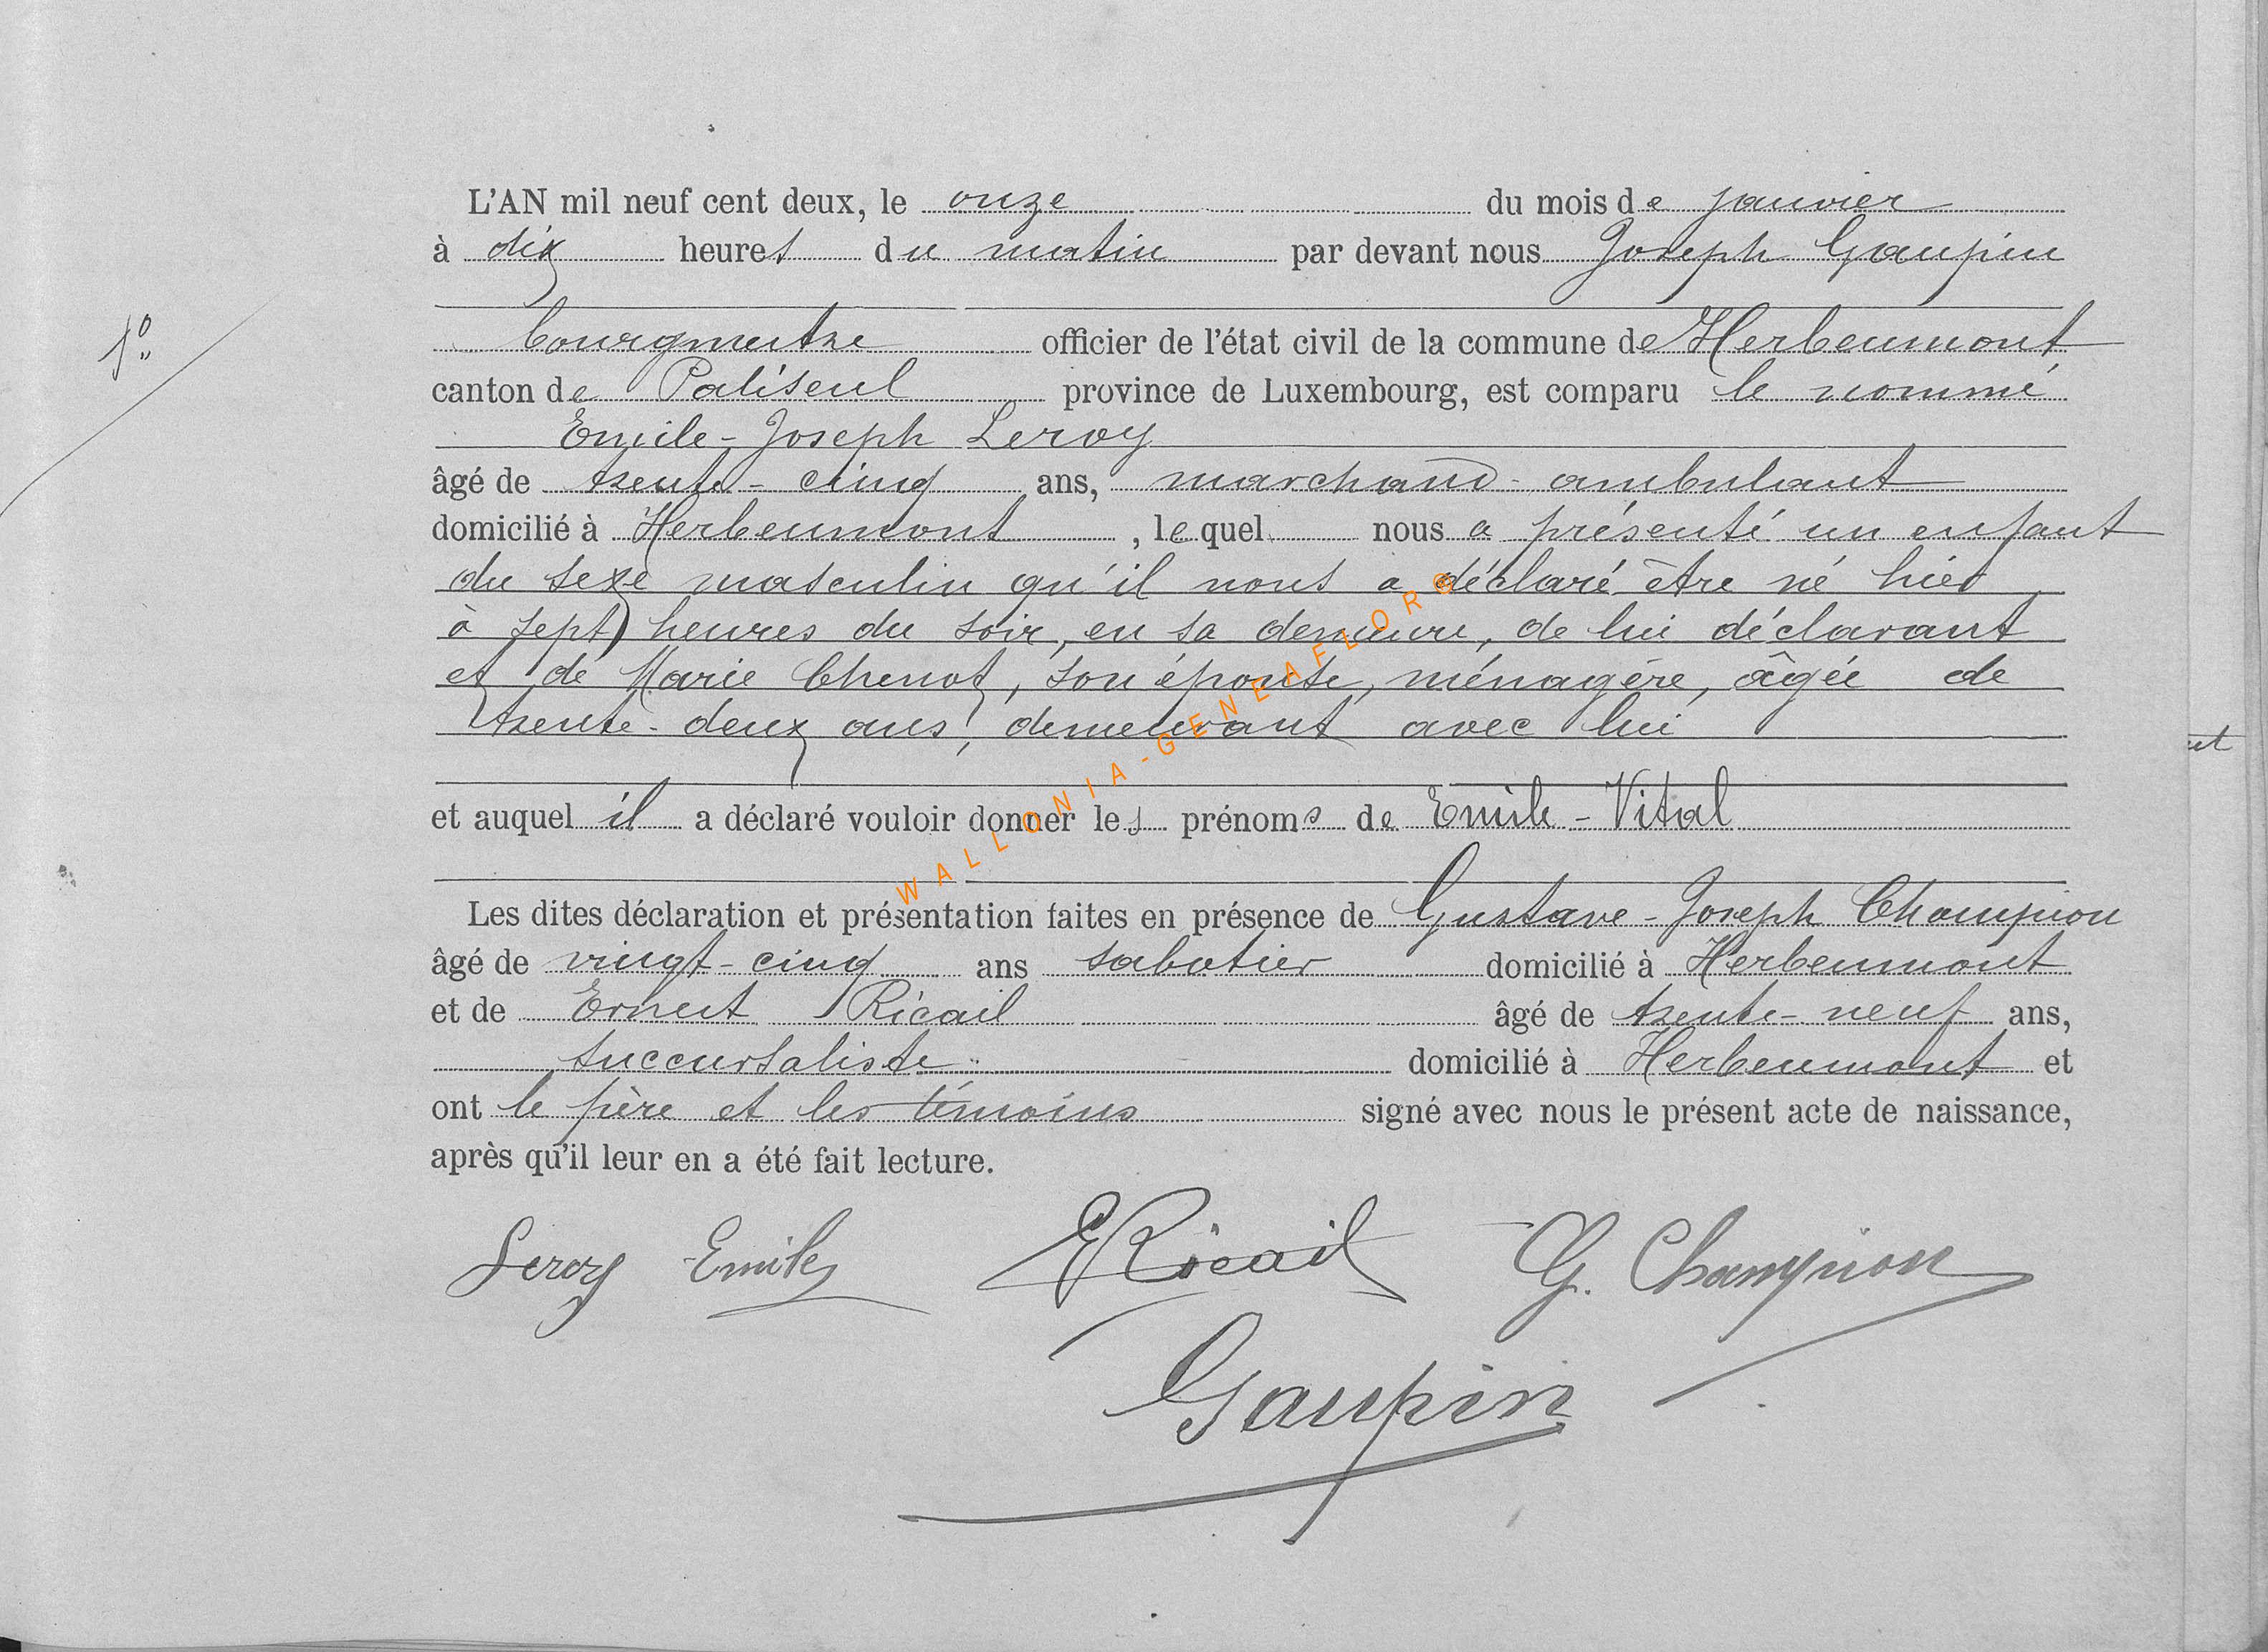 L'AN mil neuf cent deux, le onze du mois de janvier
à dix heures du matin par devant nous Joseph Gaupin
1º
bourgmestre officier de l'état civil de la commune de Herbeumont
canton de Paliseul province de Luxembourg, est comparu le nommé
Emile-Joseph Leroy
âgé de trente-cinq ans, marchand-ambulant
domicilié à Herbeumont, lequel nous a présenté un enfant
du sexe masculin qu'il nous a déclaré être né hier
à sept heures du soir, en sa demeure, de lui déclarant
et de Marie Chenot, son épouse, ménagère, âgée de
trente-deux ans, demeurant avec lui
et auquel il a déclaré vouloir donner les prénoms de Emile-Vital
Les dites déclaration et présentation faites en présence de Gustave-Joseph Champion
âgé de vingt-cinq ans sabotier domicilié à Herbeumont
et de Ernest Ricail âgé de trente-neuf ans,
succursaliste domicilié à Herbeumont et
ont le père et les témoins signé avec nous le présent acte de naissance,
après qu'il leur en a été fait lecture.
Leroy Emile ERicail G. Champion
Gaupin
WALLONIA-GENEAFLOR®